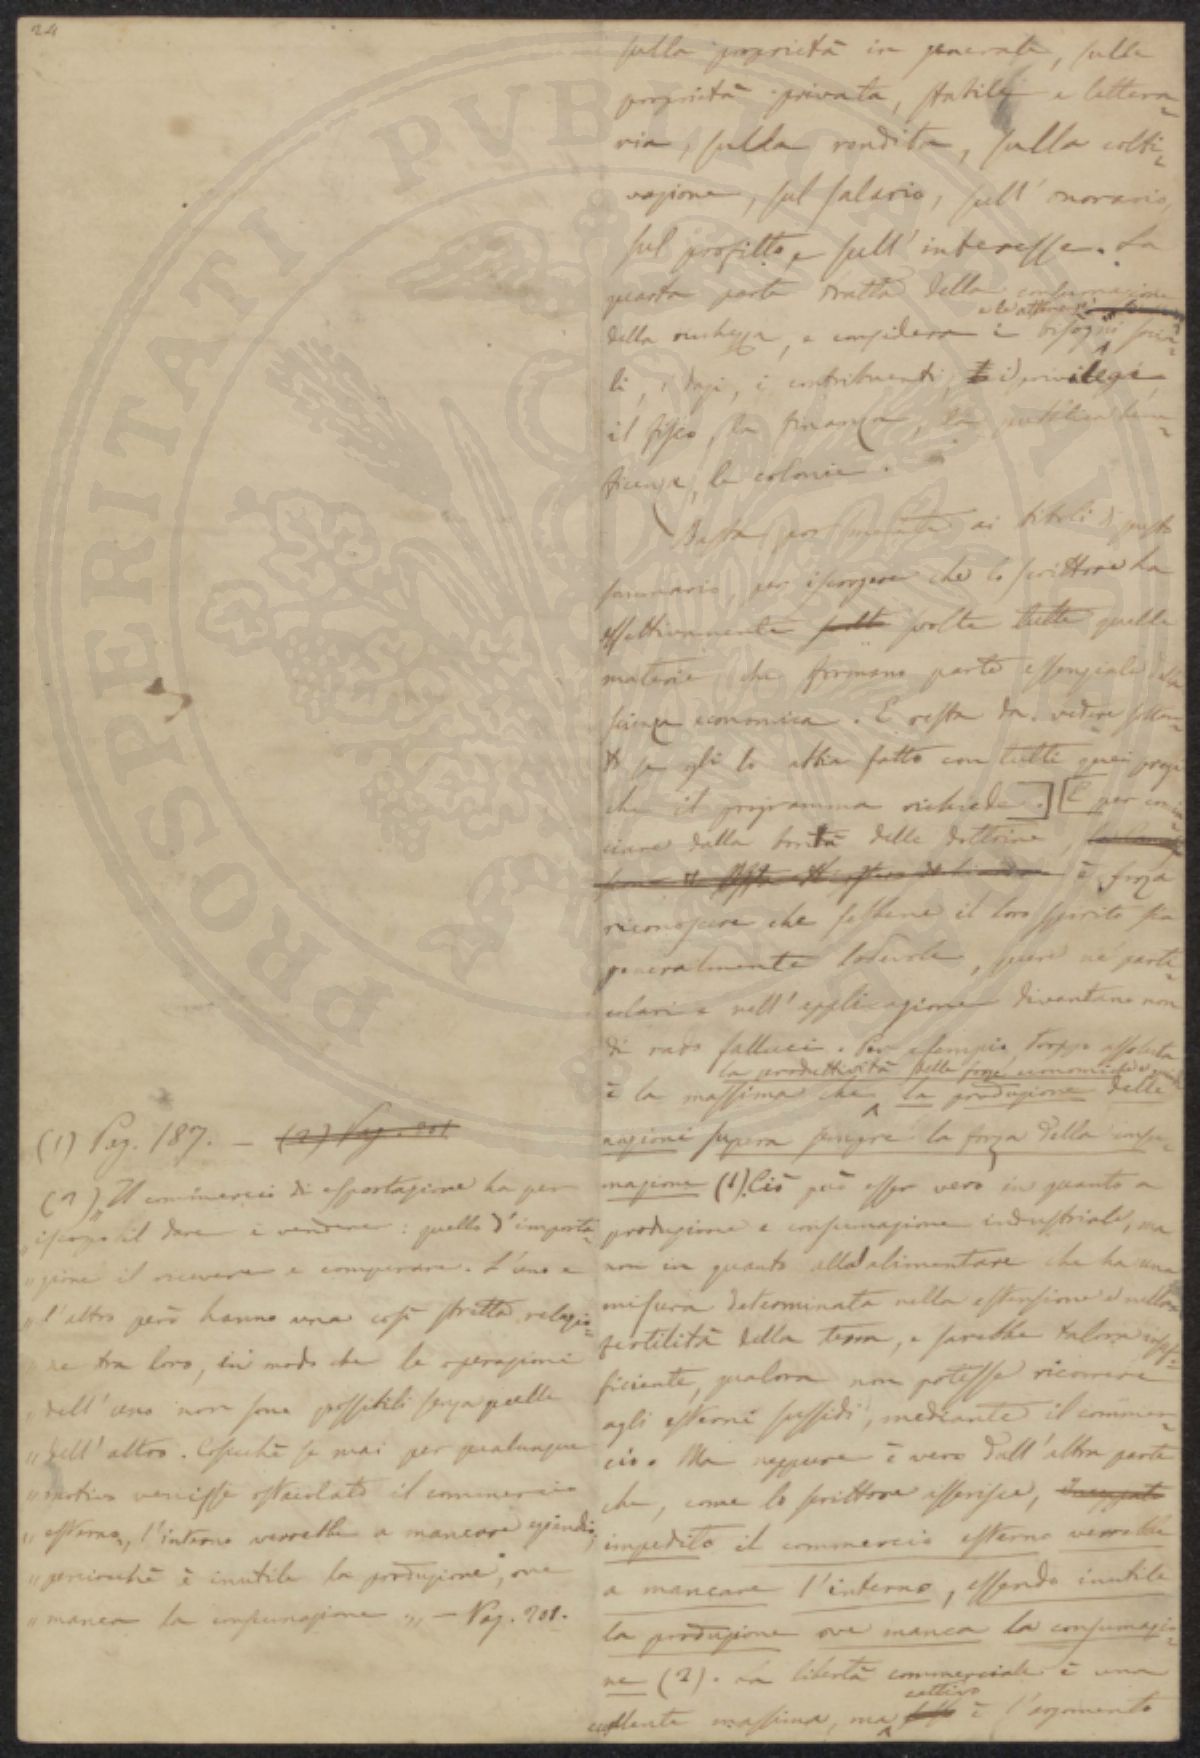 24
sulla proprietà in generale, sulla
proprietà privata, stabile e lettera-
ria, sulla rendita, sulla colti-
vazione, sul salario, sull'onorario,
sul profitto, e sull'interesse. La
quarta parte tratta della consumazione
della ricchezza, e considera i bisogni socia-
li, i dazi, i contribuenti, i privilegi
il fisco, la finanza, la pubblica bene-
ficenza, le colonie.
Basta por mente ai titoli di questo
sommario, per iscorgere che lo scrittore ha
effettivamente svolte tutte quelle
materie che formano parte essenziale della
scienza economica. E resta da vedere soltan-
to se egli lo abbia fatto con tutti quei pregi
che il programma richiede. E per comin-
ciare dalla bontà delle dottrine,
è forza
riconoscere che sebbene il loro spirito sia
generalmente lodevole, pure ne' parti-
colari e nell'applicazione diventano non
di rado fallaci. Per esempio, troppo assoluta
la produttività delle forze economiche
è la massima che la produzione delle
nazioni supera sempre la forza della consu-
mazione (1). Ciò può esser vero in quanto a
produzione e consumazione industriale, ma
non in quanto all'alimentare che ha una
misura determinata nella estensione e nella
fertilità della terra, e sarebbe talora insuf-
ficiente, qualora non potesse ricorrere
agli esterni sussidi, mediante il commer-
cio. Ma neppure è vero dall'altra parte
che, come lo scrittore asserisce,
impedito il commercio esterno verrebbe
a mancare l'interno, essendo inutile
la produzione ove manca la consumazio-
ne (2). La libertà commerciale è una
cattivo
eccellente massima, ma è l'argomento
(1) Pag. 187. — (2) Pag. 201
(2) „Il commercio di esportazione ha per
„iscopo il dare e vendere: quello d'importa-
„zione il ricevere e comperare. L'uno e
„l'altro però hanno una così stretta relazio-
„ne tra loro, in modo che le operazioni
„dell'uno non sono possibili senza quelle
„dell'altro. Cosicchè se mai per qualunque
„motivo venisse ostacolato il commercio
„esterno, l'interno verrebbe a mancare eziandio,
„perciocchè è inutile la produzione, ove
„manca la consumazione „ — Pag. 201.
PROSPERITATI PVBLICAE